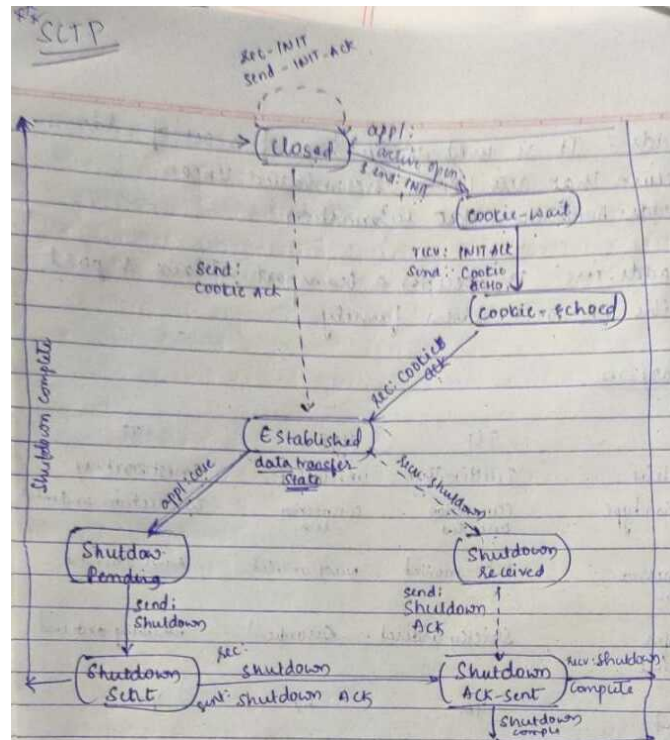 SCTP
rec-INIT
send-INIT-Ack
Closed
appl:
active open
send: INIT
Cookie-Wait
recv: INIT Ack
Send: Cookie
ECHO
Cookie-Echoed
Send:
Cookie Ack
rec: Cookie
ack
Established
data transfer
state
appl:
recv: Shutdown
Shutdown complete
Shutdow
Pending
Shutdown
received
send:
Shutdown
send:
Shutdown
ACK
Shutdown
Sent
rec:
Shutdown
sent: Shutdown ACK
Shutdown
ACK-sent
recv: Shutdown
Complete
Shutdown
comple